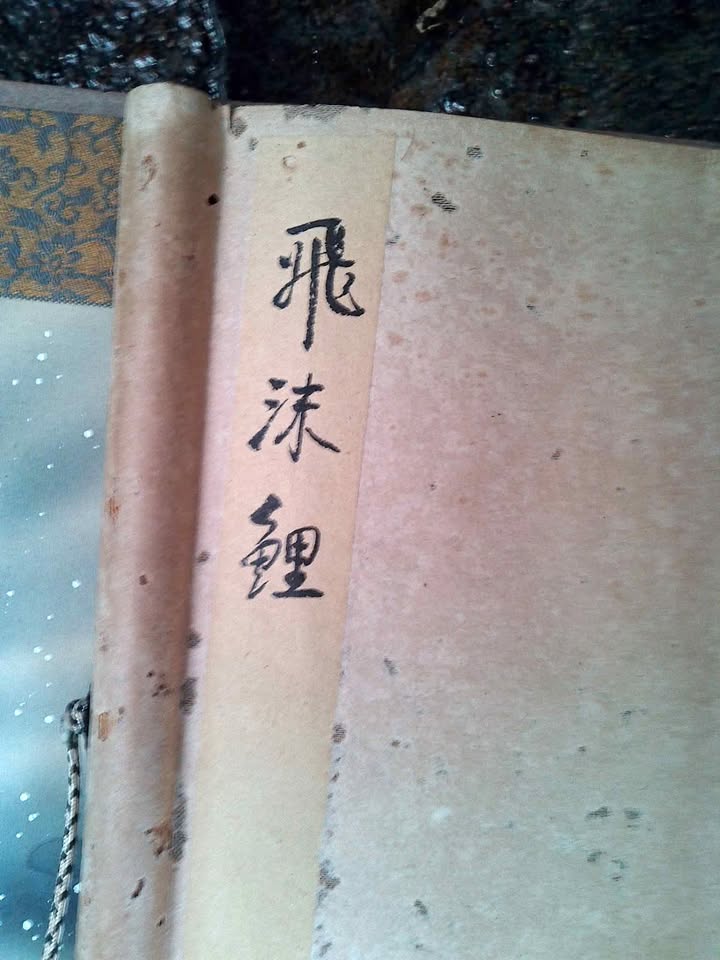 飛沫鯉